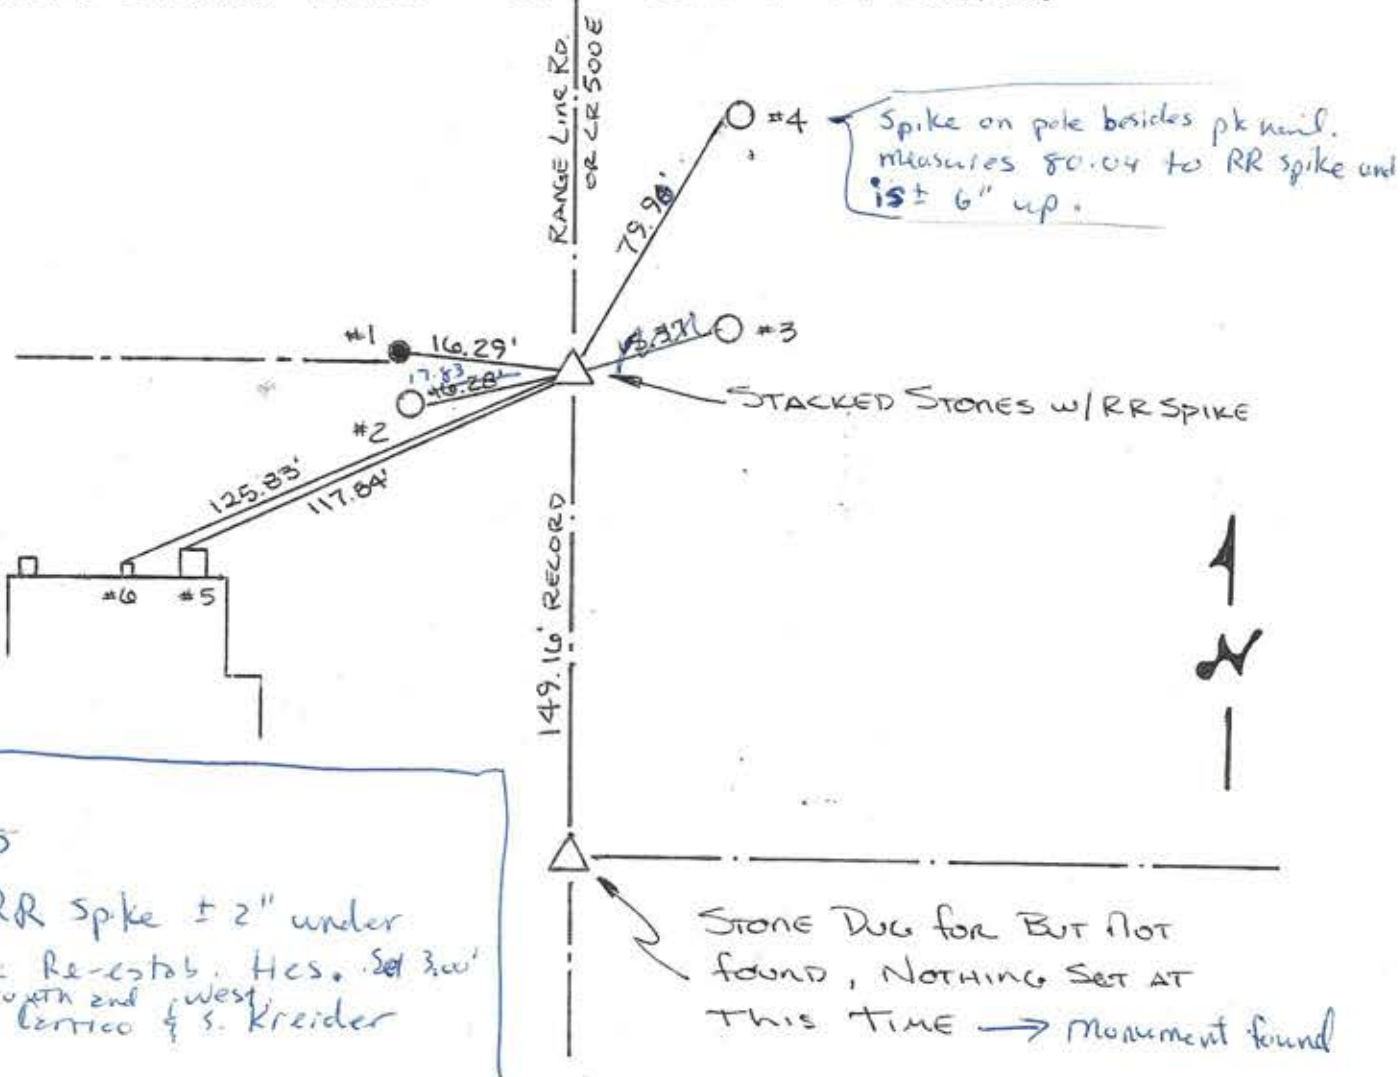 RANGE LINE RD.
OR CR 500E
#4
Spike on pole besides pk nail.
measures 80.04 to RR spike and
is ± 6" up.
79.98'
#1
16.29'
#3
17.83
16.28'
#2
STACKED STONES W/RR SPIKE
125.83'
117.84'
149.16' RECORD
#6
#5
N
RR Spike ± 2" under
Re-estab. Hcs. Set 3.00'
and West
& S. Kreider
STONE DUG FOR BUT NOT
FOUND, NOTHING SET AT
THIS TIME → Monument found